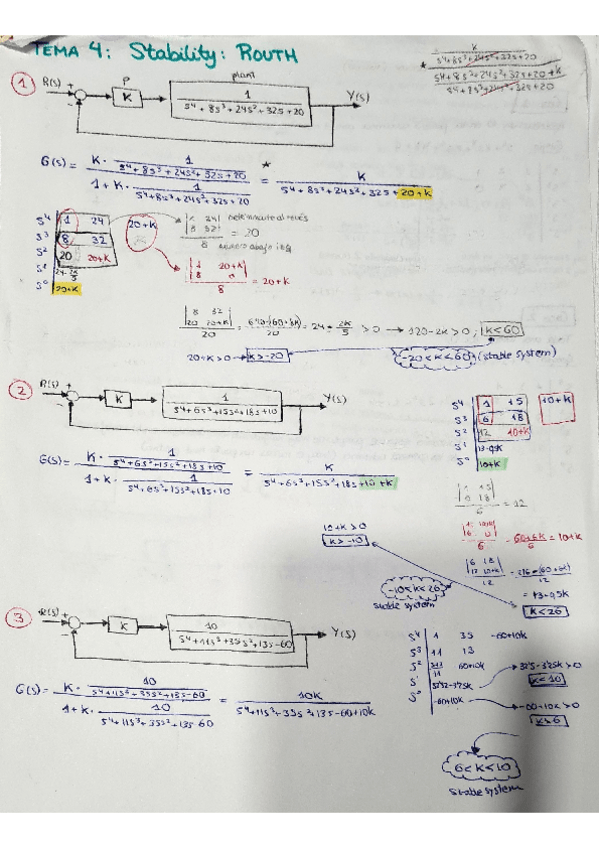 TEMA 4: Stability: ROUTH
K
s⁴+8s³+24s²+32s+20
* s⁴+8s³+24s²+32s+20+K
s⁴+8s³+24s²+32s+20
1
R(s) + P plant
K 1 Y(s)
- s⁴+8s³+24s²+32s+20
G(s) = K · 1 * K
s⁴+8s³+24s²+32s+20 = s⁴+8s³+24s²+32s+20+K
1+K · 1
s⁴+8s³+24s²+32s+20
s⁴ 1 24 20+K
s³ 8 32
s² 20 20+K
s¹ 24-2K/5
s⁰ 20+K
= 20
8
1 20+K
8 0 = 20+K
8
8 32
20 20+K = = 24 + 2K/5 > 0 → 120-2K > 0; K<60
20 20
20+K>0 → K>-20 -20<K<60 (stable system)
2
R(s) + K 1 Y(s)
- s⁴+6s³+15s²+18s+10
G(s) = K · 1 K
s⁴+6s³+15s²+18s+10 = s⁴+6s³+15s²+18s+10+K
1+K · 1
s⁴+6s³+15s²+18s+10
s⁴ 1 15 10+K
s³ 6 18
s² 12 10+K
s¹ 13-0,5K
s⁰ 10+K
1 15
6 18 = 12
6
1 10+K
6 0 = 60+6K = 10+K
6 6
6 18
12 10+K = 216-(60+6K)
12 12
= 13-0,5K
K<26
10+K>0
K>-10
-10<K<26
stable system
3
R(s) + K 10 Y(s)
- s⁴+11s³+35s²+13s-60
G(s) = K · 10 10K
s⁴+11s³+35s²+13s-60 = s⁴+11s³+35s²+13s-60+10K
1+K · 10
s⁴+11s³+35s²+13s-60
s⁴ 1 35 -60+10K
s³ 11 13
s² 60+10K
s¹
s⁰ -60+10K
K<10
-60+10K>0
K>6
6<K<10
stable system